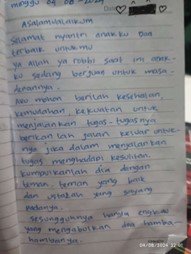 minggu 04 08 - 2024
Assalamualaikum
Selamat nyantri anakku Doa
terbaik untukmu
ya allah ya robbi saat ini anak-
ku sedang berguru untuk masa
depannya,
aku mohon berilah kesehatan,
kemudahan kekuatan untuk
menjalankan tugas-tugasnya
berikanlah jalan keluar untuk-
nya jika dalam menjalankan
tugas menghadapi kesulitan,
kumpulkanlah dia dengan
teman teman yang baik
dan ustadah yang sayang
padanya.
sesungguhnya hanya engkau
yang mengabulkan doa hamba-
hambanya.
04/08/2024